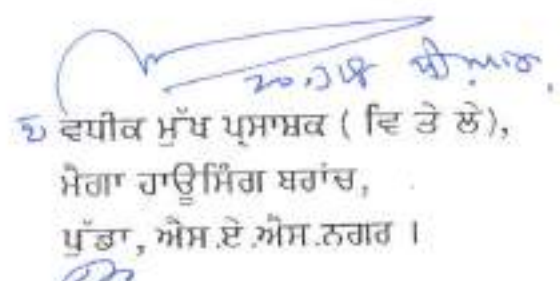 ਵਧੀਕ ਮੁੱਖ ਪ੍ਰਸਾਸ਼ਕ ( ਵਿ ਤੇ ਲੇ),
ਮੈਗਾ ਹਾਊਸਿੰਗ ਬਰਾਂਚ,
ਪੁੱਡਾ, ਐਸ.ਏ.ਐਸ.ਨਗਰ ।